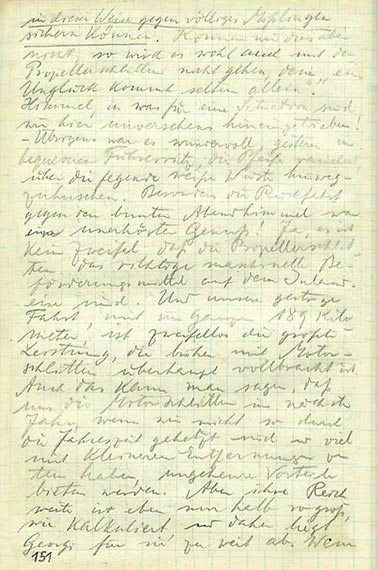 in dieser Weise gegen völliges Mißlingen
sichern können. Können wir dies aber
nicht, so wird es wohl auch mit den
Propellerschlitten nicht gehen, denn „ein
Unglück kommt selten allein".
Himmel, in was für eine Situation sind
wir hier unversehens hineingetrieben!
- Übrigens war es wundervoll, gestern im
bequemen Führersitz, die Pfeife rauchend
über die fegende weiße Wüste hinweg-
zuhuschen. Besonders die Rückfahrt
gegen den bunten Abendhimmel war
ein unerhörter Genuß! Ja, es ist
kein Zweifel, daß die Propellerschlit-
ten das richtige maschinelle Be-
förderungsmittel auf dem Inlands-
eise sind. Und unsere gestrige
Fahrt, rund im ganzen 189 Kilo
meter, ist zweifellos die größte
Leistung, die bisher mit Motor-
schlitten überhaupt vollbracht ist.
Auch das kann man sagen, daß
uns die Motorschlitten im nächsten
Jahr, wenn wir nicht so durch
die Jahreszeit gehetzt sind und viel
mit kleineren Entfernungen zu
tun haben, ungeheure Vorteile
bieten werden. Aber ihre Reich
weite ist eben nur halb so groß,
wie kalkuliert und daher liegt
Georgi für sie zu weit ab. Wenn
151